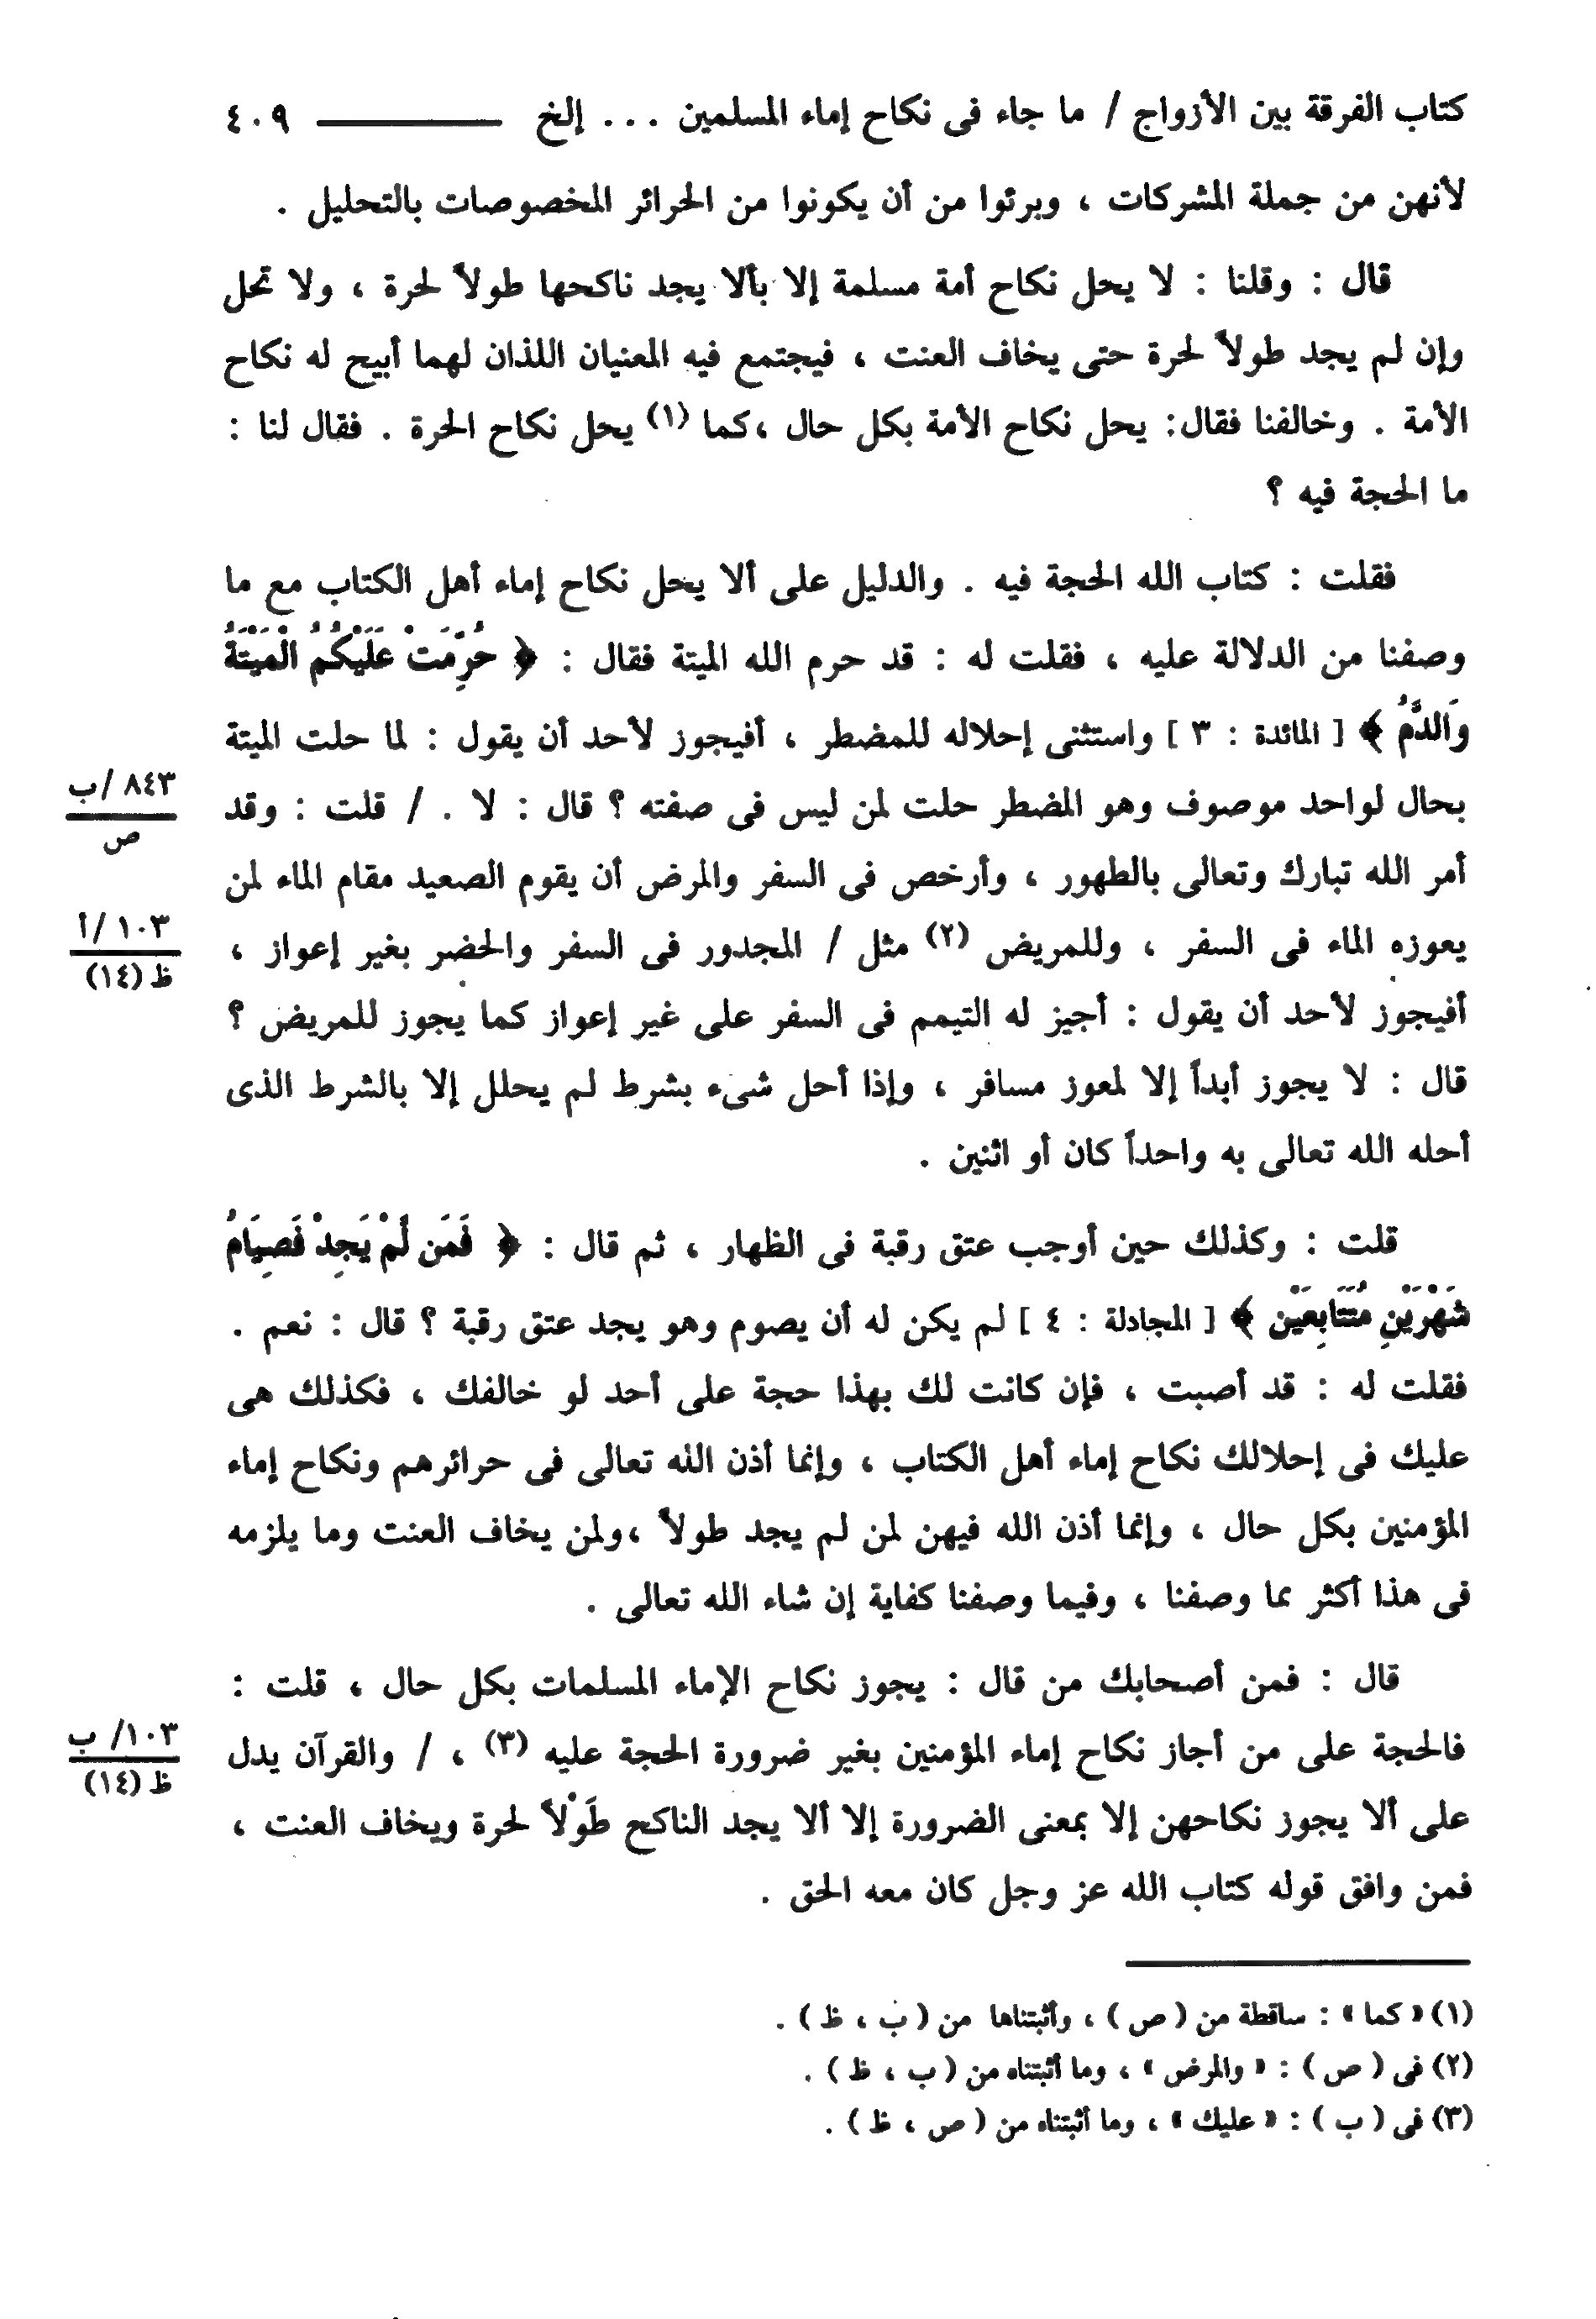 كتاب الفرقة بين الأزواج / ما جاء فى نكاح إماء المسلمين . . . إلخ ــــــــــ ٤٠٩
لأنهن من جملة المشركات ، وبرئوا من أن يكونوا من الحرائر المخصوصات بالتحليل .
قال : وقلنا : لا يحل نكاح أمة مسلمة إلا بألا يجد ناكحها طولاً لحرة ، ولا تحل
وإن لم يجد طولاً لحرة حتى يخاف العنت ، فيجتمع فيه المعنيان اللذان لهما أبيح له نكاح
الأمة . وخالفنا فقال: يحل نكاح الأمة بكل حال ،كما (١) يحل نكاح الحرة . فقال لنا :
ما الحجة فيه ؟
فقلت : كتاب الله الحجة فيه . والدليل على ألا يحل نكاح إماء أهل الكتاب مع ما
وصفنا من الدلالة عليه ، فقلت له : قد حرم الله الميتة فقال : ﴿ حُرِّمَتْ عَلَيْكُمُ الْمَيْتَةُ
وَالدَّمُ ﴾ [ المائدة : ٣ ] واستثنى إحلاله للمضطر ، أفيجوز لأحد أن يقول : لما حلت الميتة
بحال لواحد موصوف وهو المضطر حلت لمن ليس فى صفته ؟ قال : لا . / قلت : وقد
٨٤٣ /ب
ص
أمر الله تبارك وتعالى بالطهور ، وأرخص فى السفر والمرض أن يقوم الصعيد مقام الماء لمن
يعوزه الماء فى السفر ، وللمريض (٢) مثل / المجدور فى السفر والحضر بغير إعواز ،
١٠٣ /أ
ظ (١٤)
أفيجوز لأحد أن يقول : أجيز له التيمم فى السفر على غير إعواز كما يجوز للمريض ؟
قال : لا يجوز أبداً إلا لمعوز مسافر ، وإذا أحل شىء بشرط لم يحلل إلا بالشرط الذى
أحله الله تعالى به واحداً كان أو اثنين .
قلت : وكذلك حين أوجب عتق رقبة فى الظهار ، ثم قال : ﴿ فَمَن لَّمْ يَجِدْ فَصِيَامُ
شَهْرَيْنِ مُتَتَابِعَيْنِ ﴾ [ المجادلة : ٤ ] لم يكن له أن يصوم وهو يجد عتق رقبة ؟ قال : نعم .
فقلت له : قد أصبت ، فإن كانت لك بهذا حجة على أحد لو خالفك ، فكذلك هى
عليك فى إحلالك نكاح إماء أهل الكتاب ، وإنما أذن الله تعالى فى حرائرهم ونكاح إماء
المؤمنين بكل حال ، وإنما أذن الله فيهن لمن لم يجد طولاً ،ولمن يخاف العنت وما يلزمه
فى هذا أكثر مما وصفنا ، وفيما وصفنا كفاية إن شاء الله تعالى .
قال : فمن أصحابك من قال : يجوز نكاح الإماء المسلمات بكل حال ، قلت :
فالحجة على من أجاز نكاح إماء المؤمنين بغير ضرورة الحجة عليه (٣) ، / والقرآن يدل
١٠٣/ ب
ظ (١٤)
على ألا يجوز نكاحهن إلا بمعنى الضرورة إلا ألا يجد الناكح طَوْلاً لحرة ويخاف العنت ،
فمن وافق قوله كتاب الله عز وجل كان معه الحق .
(١) « كما » : ساقطة من ( ص ) ، وأثبتناها من ( ب ، ظ ) .
(٢) فى ( ص ) : « والمرض » ، وما أثبتناه من ( ب ، ظ ) .
(٣) فى ( ب ) : « عليك » ، وما أثبتناه من ( ص ، ظ ) .